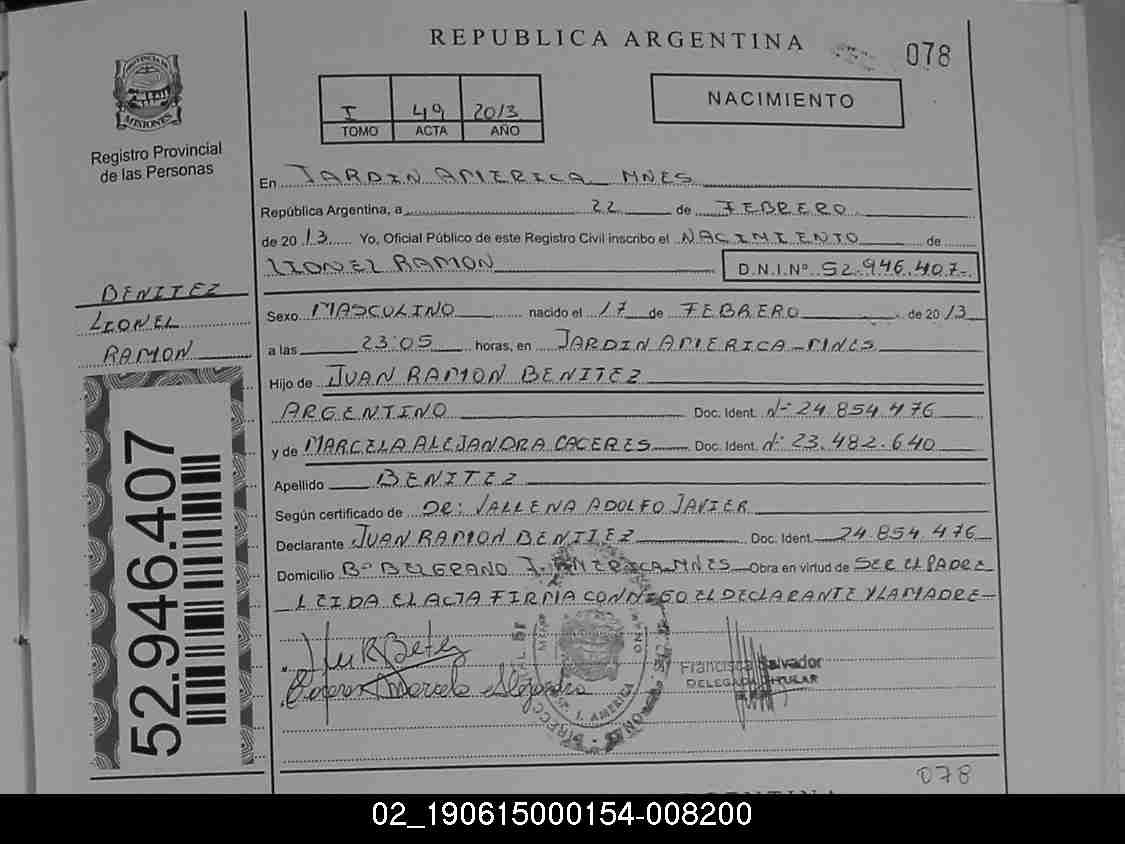 REPUBLICA ARGENTINA
078
PROVINCIA DE
MISIONES
Registro Provincial
de las Personas
I 49 2013
TOMO ACTA AÑO
NACIMIENTO
En JARDIN AMERICA MNES
República Argentina, a 22 de FEBRERO
de 2013 Yo, Oficial Público de este Registro Civil inscribo el NACIMIENTO de
LIONEL RAMON D.N.I.Nº 52.946.407-
BENITEZ
LIONEL
RAMON
Sexo MASCULINO nacido el 17 de FEBRERO de 2013
a las 23:05 horas, en JARDIN AMERICA - MNES
Hijo de JUAN RAMON BENITEZ
ARGENTINO Doc. Ident. Nº 24.854.476
y de MARCELA ALEJANDRA CACERES Doc. Ident. Nº 23.482.640
Apellido BENITEZ
Según certificado de DR: VALLENA ADOLFO JAVIER
Declarante JUAN RAMON BENITEZ Doc. Ident. 24.854.476
Domicilio Bº BELGRANO J. AMERICA MNES Obra en virtud de SER EL PADRE
LEIDA EL ACTA FIRMA CONMIGO EL DECLARANTE Y LA MADRE-
52.946.407
Caceres Marcela Alejandra
Salvador
DELEGADA TITULAR
J. AMERICA
078
02_190615000154-008200